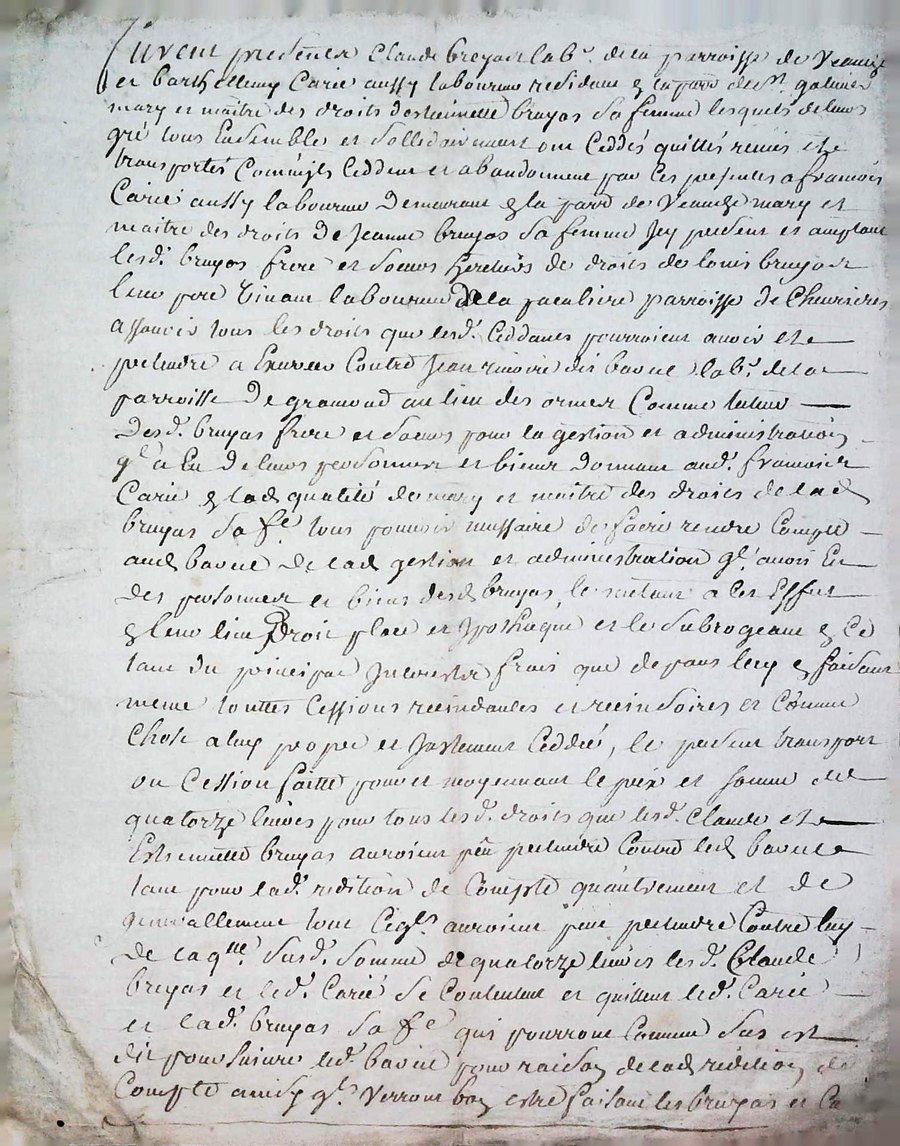 furent presents Claude bruyas lab.r de la parroisse de Veauche
et barthellemy Carié aussy laboureur résident en la parr. de St. galmier
mary et maître des droits destiennette bruyas sa femme lesquels de leurs
gré tous Ensemble et sollidairement ont Ceddés quittés remis et
transportés Comm'ils Ceddent et abandonnent par Ces presentes a francois
Carié aussy laboureur demeurant en la parr. de Veauche mary et
maitre des droits de Jeanne bruyas sa femme Icy present et acceptant
lesd. bruyas frere et soeurs heretiers de droits de louis bruyas
leur pere vivant laboureur de la parroisse de Chevrieres
assavoir tous les droits que lesd. Ceddants pourroient avoir et
pretendre a Exercer Contre Jean dit bavue lab.r de la
parroisse de gramond au lieu des ormes Comme tuteur
desd. bruyas frere et soeurs pour la gestion et administration
q'l a Eu de leurs personnes et biens donnant aud. francois
Carié en lad. qualité de mary et maitre des droits de lad.
bruyas sa fe. tous pouvoir nessaire de faire rendre Compte
aud. bavue de lad. gestion et administration q'l avoit Eu
des personnes et biens desd. bruyas, le mettant a Ces Effets
en leur lieu Droit place et ypotheque et le subrogeant en Ce
tant du principal Interests frais que depans luy en faisant
meme touttes Cessions rescindantes et rescisoires et Comme
Chose a luy propre et Justement Ceddée, le present transport
ou Cession faitte pour et moyennant le prix et somme de
quatorze livres pour tous lesd. droits que lesd. Claude et
Estiennette bruyas auroient peu pretendre Contre led. bavue
tant pour lad. redition de Compte quautrement et de
generallement tout Ceq'ls auroient peu pretendre Contre luy
de laq'lle susd. somme de quatorze livres lesd. Claude
bruyas et led. Carié se Contentent et quittent led. Carié
et lad. bruyas sa fe. qui pourront Comme dus est
dit poursuivre led. bavue pour raison de lad. redition de
Compte ainsy q'ls verront bon estre faisant les bruyas et Ca